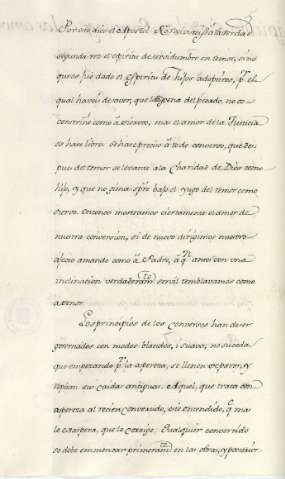 Por eso dice el Apostol: No recivisteis la verdad
segunda vez el espiritu de servidumbre en temor, sino
que os hás dado el Espiritu de hijos adoptivos, pr. el
qual haveis de saver, que la pena del pecado, no os
constriñe como á siervos, mas el amor de la Justicia
os hace libres. Se hace precio á todo converso, que des-
pues del temor se levante á la Charidad de Dios como
hijo, y que no gima spre. bajo el yugo del temor como
siervo. Entonces mostramos ciertamente el amor de
nuestra conversión, si de nuevo dirigimos nuestro
afecto amando como á Padre, á qn. antes con una
inclinacion verdaderamte. servil temblavamos como
a señor.
Los principios de los conversos han de ser
governados con modos blandos, i suaves; no suceda
que empezando pr. la aspereza, se llenen de pavor, y
repitan sus caidas antiguas. Aquel, que trata con
aspereza al recien convertido, este entendido, qe. mas
le exaspera, que le corrige. Qualquier convertido
se debe enmendar primeramte. en las obras, y despues